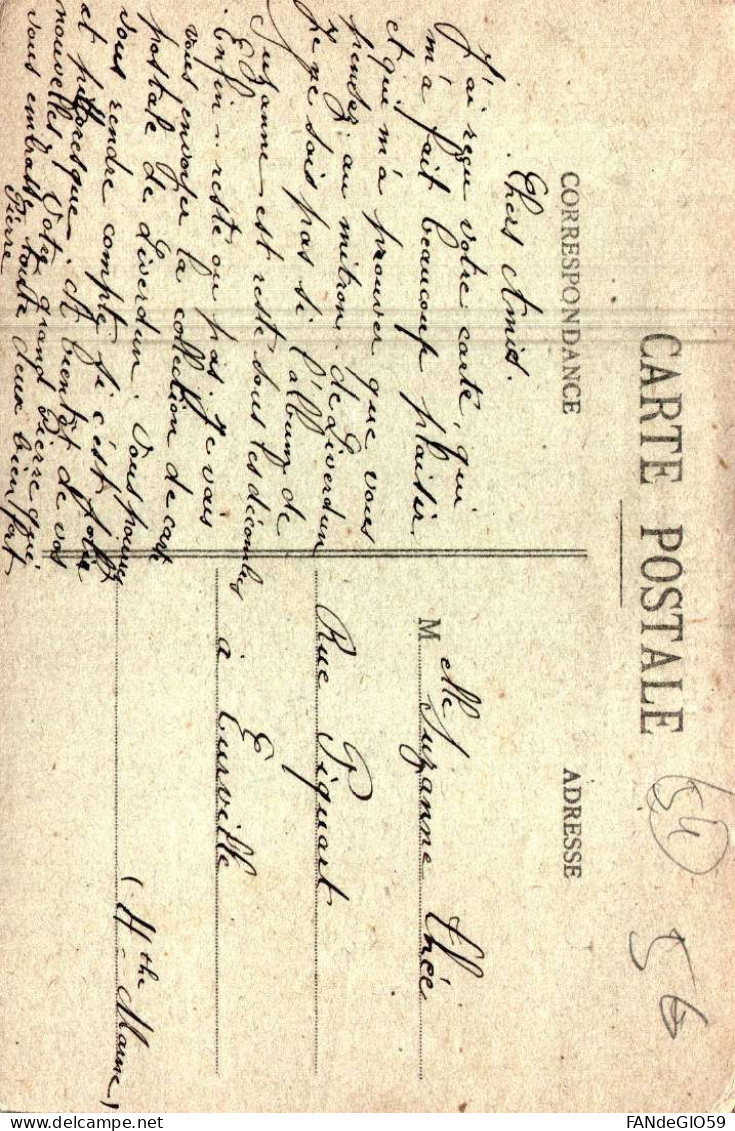 CARTE POSTALE
CORRESPONDANCE
ADRESSE
Chers Amies.
J'ai reçu votre carte, qui
m'a fait beaucoup plaisir.
et qui m'a prouver que vous
pensez au mitron de Liverdun
Je ne sais pas si l'album de
Suzanne est reste sous les décombres
Enfin. reste ou pas. Je vais
vous envoyer la collection de carte
postale de Liverdun. Vous pourrez
vous rendre compte si c'est joli
et pittoresque. A bientôt de vos
nouvelles, Votre grand Pierre qui
vous embrasse toute deux bien fort
Pierre
M elle Suzanne Thée
Rue Piquart
à Eurville
(Hte Marne)
54
56
FANdeGIO59